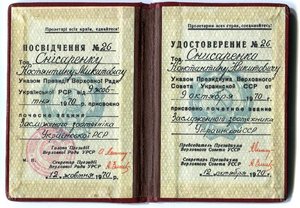 Пролетарі всіх країн, єднайтеся!
ПОСВІДЧЕННЯ №26
Тов. Снисаренку
Костянтину Микитовичу
Указом Президії Верховної Ради
Української РСР від 9 жов-
тня 1970 р. присвоєно
почесне звання
Заслуженого
Української РСР
Голова Президії
Верховної Ради УРСР
Секретар Президії
Верховної Ради УРСР
12 жовтня 1970 р.
Пролетарии всех стран, соединяйтесь!
УДОСТОВЕРЕНИЕ №26
Тов. Снисаренко
Константину Никитовичу
Указом Президиума Верховного
Совета Украинской ССР от
9 октября 1970 г.
присвоено почетное звание
Заслуженного
Украинской ССР
Председатель Президиума
Верховного Совета УССР
Секретарь Президиума
Верховного Совета УССР
12 октября 1970 г.